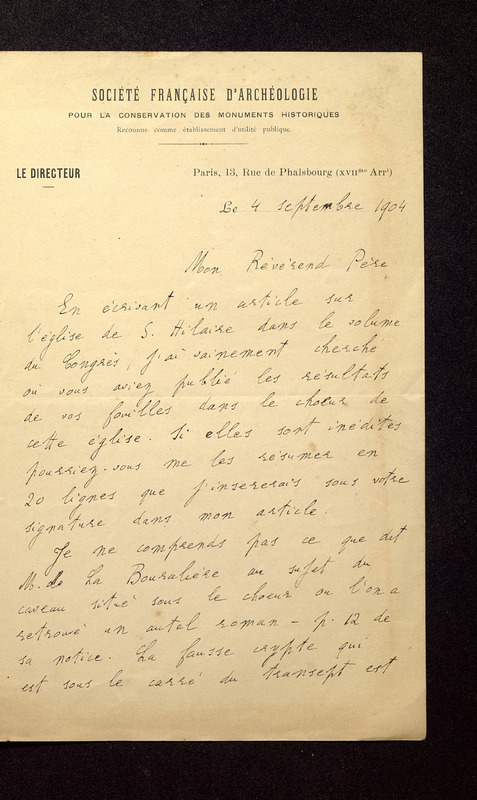 SOCIÉTÉ FRANÇAISE D'ARCHÉOLOGIE
POUR LA CONSERVATION DES MONUMENTS HISTORIQUES
Reconnue comme établissement d'utilité publique.
LE DIRECTEUR
Paris, 13, Rue de Phalsbourg (XVIIme Arrt)
Le 4 septembre 1904
Mon Révérend Père,
En écrivant un article sur
l'église de S. Hilaire dans le volume
du Congrès, j'ai vainement cherché
où vous aviez publié les résultats
de vos fouilles dans le chœur de
cette église. Si elles sont inédites
pourriez-vous me les résumer en
20 lignes que j'insererais sous votre
signature dans mon article.
Je ne comprends pas ce que dit
M. de La Bouralière au sujet du
caveau situé sous le chœur où l'on a
retrouvé un autel roman - p. 12 de
sa notice. La fausse crypte qui
est sous le carré du transept est